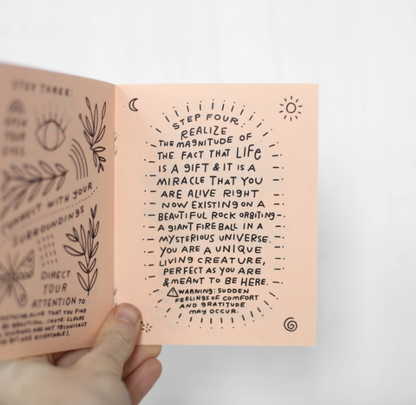 STEP THREE:
OPEN
YOUR
EYES
CONNECT WITH YOUR
SURROUNDINGS
DIRECT
YOUR
ATTENTION TO
ALIVE THAT YOU FIND
STEP FOUR:
REALIZE
THE MAGNITUDE OF
THE FACT THAT LIFE
IS A GIFT & IT IS A
MIRACLE THAT YOU
ARE ALIVE RIGHT
NOW EXISTING ON A
BEAUTIFUL ROCK ORBITING
A GIANT FIREBALL IN A
MYSTERIOUS UNIVERSE.
YOU ARE A UNIQUE
LIVING CREATURE,
PERFECT AS YOU ARE
& MEANT TO BE HERE.
WARNING: SUDDEN
FEELINGS OF COMFORT
AND GRATITUDE
MAY OCCUR.